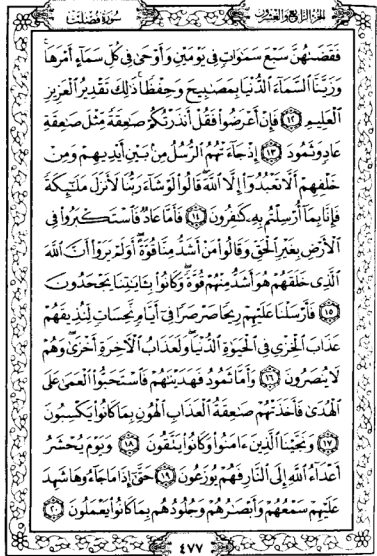 الجزء الرابع والعشرون
سورة فصلت
فَقَضَىٰهُنَّ سَبْعَ سَمَٰوَاتٍ فِى يَوْمَيْنِ وَأَوْحَىٰ فِى كُلِّ سَمَآءٍ أَمْرَهَا ۚ
وَزَيَّنَّا ٱلسَّمَآءَ ٱلدُّنْيَا بِمَصَٰبِيحَ وَحِفْظًا ۚ ذَٰلِكَ تَقْدِيرُ ٱلْعَزِيزِ
ٱلْعَلِيمِ ١٢ فَإِنْ أَعْرَضُوا۟ فَقُلْ أَنذَرْتُكُمْ صَٰعِقَةً مِّثْلَ صَٰعِقَةِ
عَادٍ وَثَمُودَ ١٣ إِذْ جَآءَتْهُمُ ٱلرُّسُلُ مِنۢ بَيْنِ أَيْدِيهِمْ وَمِنْ
خَلْفِهِمْ أَلَّا تَعْبُدُوٓا۟ إِلَّا ٱللَّهَ ۖ قَالُوا۟ لَوْ شَآءَ رَبُّنَا لَأَنزَلَ مَلَٰٓئِكَةً
فَإِنَّا بِمَآ أُرْسِلْتُم بِهِۦ كَٰفِرُونَ ١٤ فَأَمَّا عَادٌ فَٱسْتَكْبَرُوا۟ فِى
ٱلْأَرْضِ بِغَيْرِ ٱلْحَقِّ وَقَالُوا۟ مَنْ أَشَدُّ مِنَّا قُوَّةً ۖ أَوَلَمْ يَرَوْا۟ أَنَّ ٱللَّهَ
ٱلَّذِى خَلَقَهُمْ هُوَ أَشَدُّ مِنْهُمْ قُوَّةً ۖ وَكَانُوا۟ بِـَٔايَٰتِنَا يَجْحَدُونَ
١٥ فَأَرْسَلْنَا عَلَيْهِمْ رِيحًا صَرْصَرًا فِىٓ أَيَّامٍ نَّحِسَاتٍ لِّنُذِيقَهُمْ
عَذَابَ ٱلْخِزْىِ فِى ٱلْحَيَوٰةِ ٱلدُّنْيَا ۖ وَلَعَذَابُ ٱلْءَاخِرَةِ أَخْزَىٰ ۖ وَهُمْ
لَا يُنصَرُونَ ١٦ وَأَمَّا ثَمُودُ فَهَدَيْنَٰهُمْ فَٱسْتَحَبُّوا۟ ٱلْعَمَىٰ عَلَى
ٱلْهُدَىٰ فَأَخَذَتْهُمْ صَٰعِقَةُ ٱلْعَذَابِ ٱلْهُونِ بِمَا كَانُوا۟ يَكْسِبُونَ
١٧ وَنَجَّيْنَا ٱلَّذِينَ ءَامَنُوا۟ وَكَانُوا۟ يَتَّقُونَ ١٨ وَيَوْمَ يُحْشَرُ
أَعْدَآءُ ٱللَّهِ إِلَى ٱلنَّارِ فَهُمْ يُوزَعُونَ ١٩ حَتَّىٰٓ إِذَا مَا جَآءُوهَا شَهِدَ
عَلَيْهِمْ سَمْعُهُمْ وَأَبْصَٰرُهُمْ وَجُلُودُهُم بِمَا كَانُوا۟ يَعْمَلُونَ ٢٠
٤٧٧